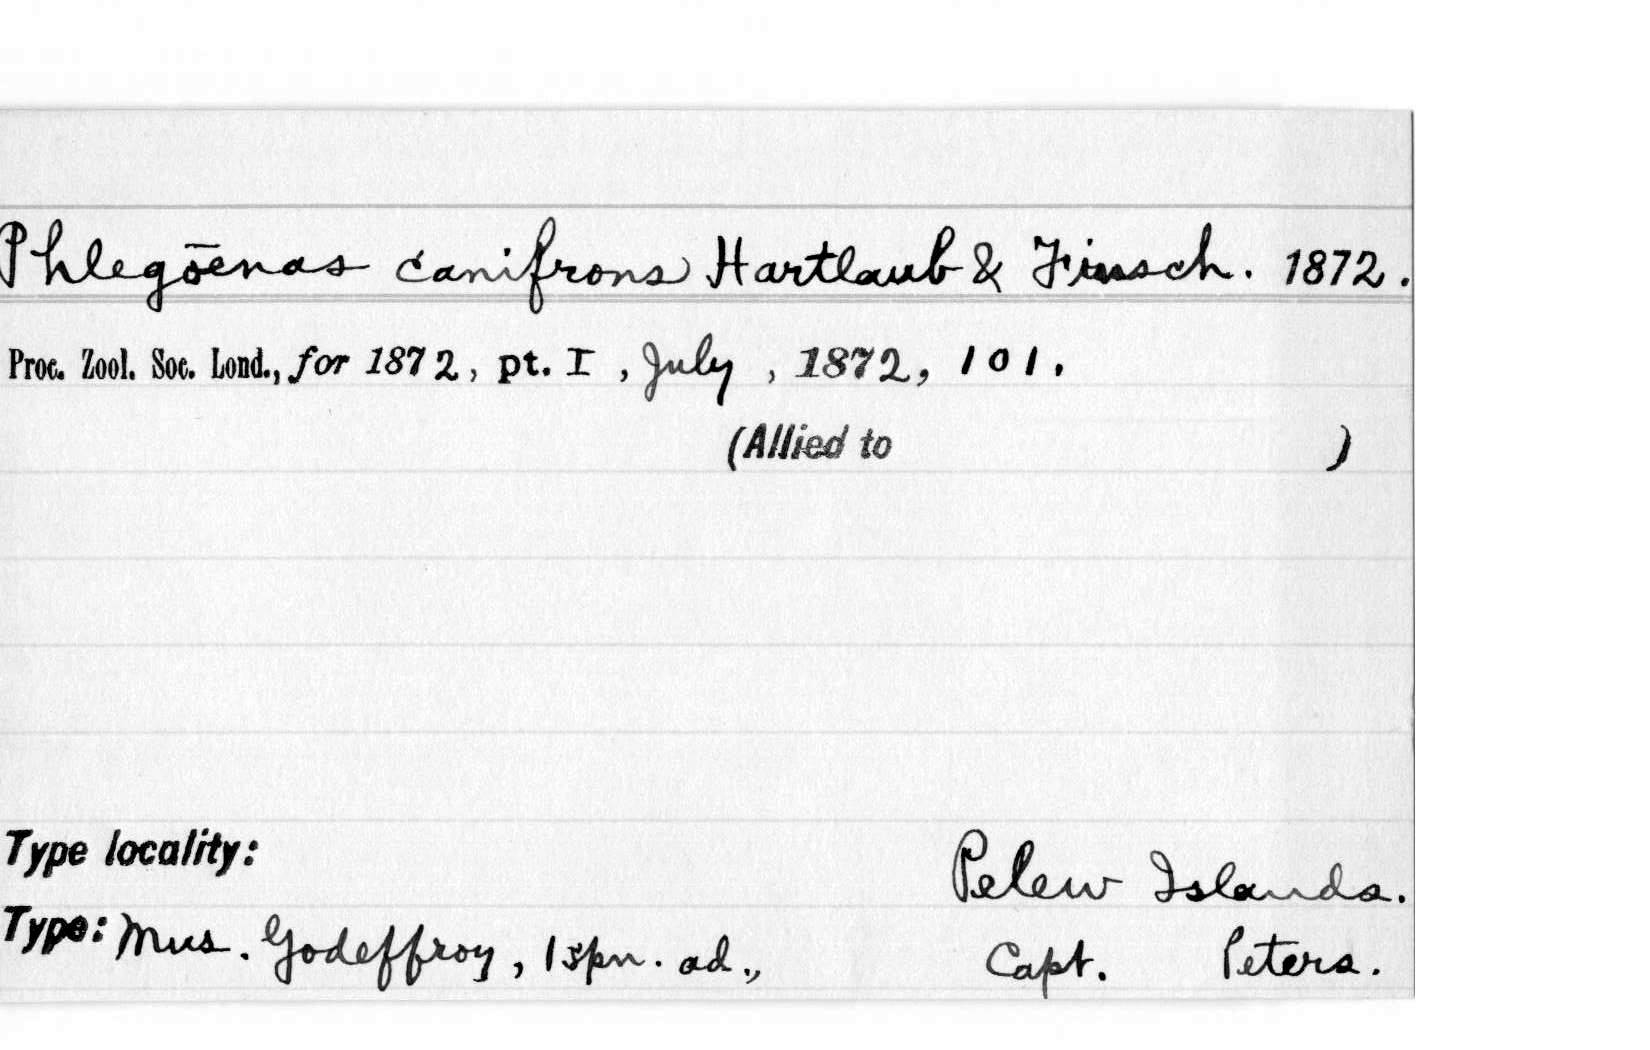 Phlegōenas canifrons Hartlaub & Finsch. 1872.
Proc. Zool. Soc. Lond., for 1872, pt. I, July, 1872, 101.
(Allied to )
Type locality: Pelew Islands.
Type: Mus. Godeffroy, 1 spn. ad., Capt. Peters.